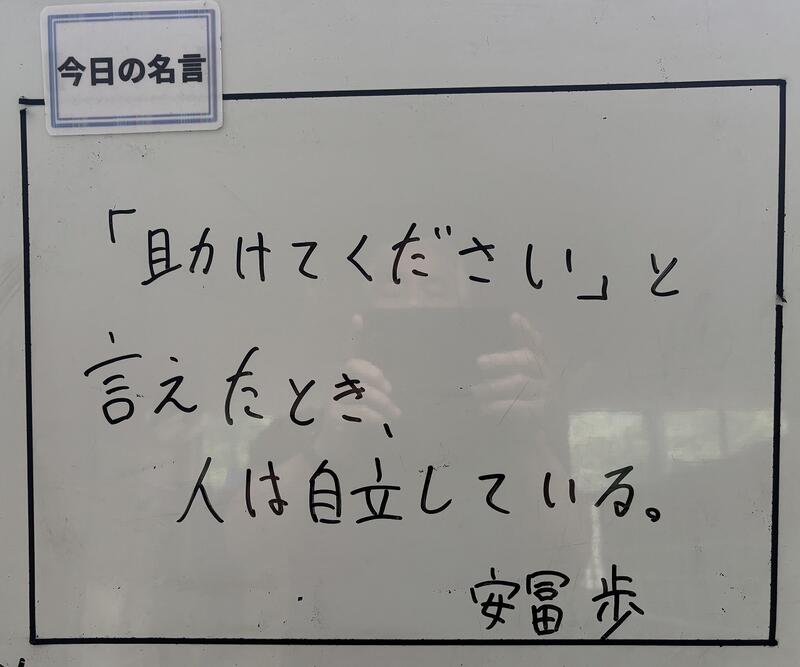 今日の名言
「助けてください」と
言えたとき、
人は自立している。
安冨 歩